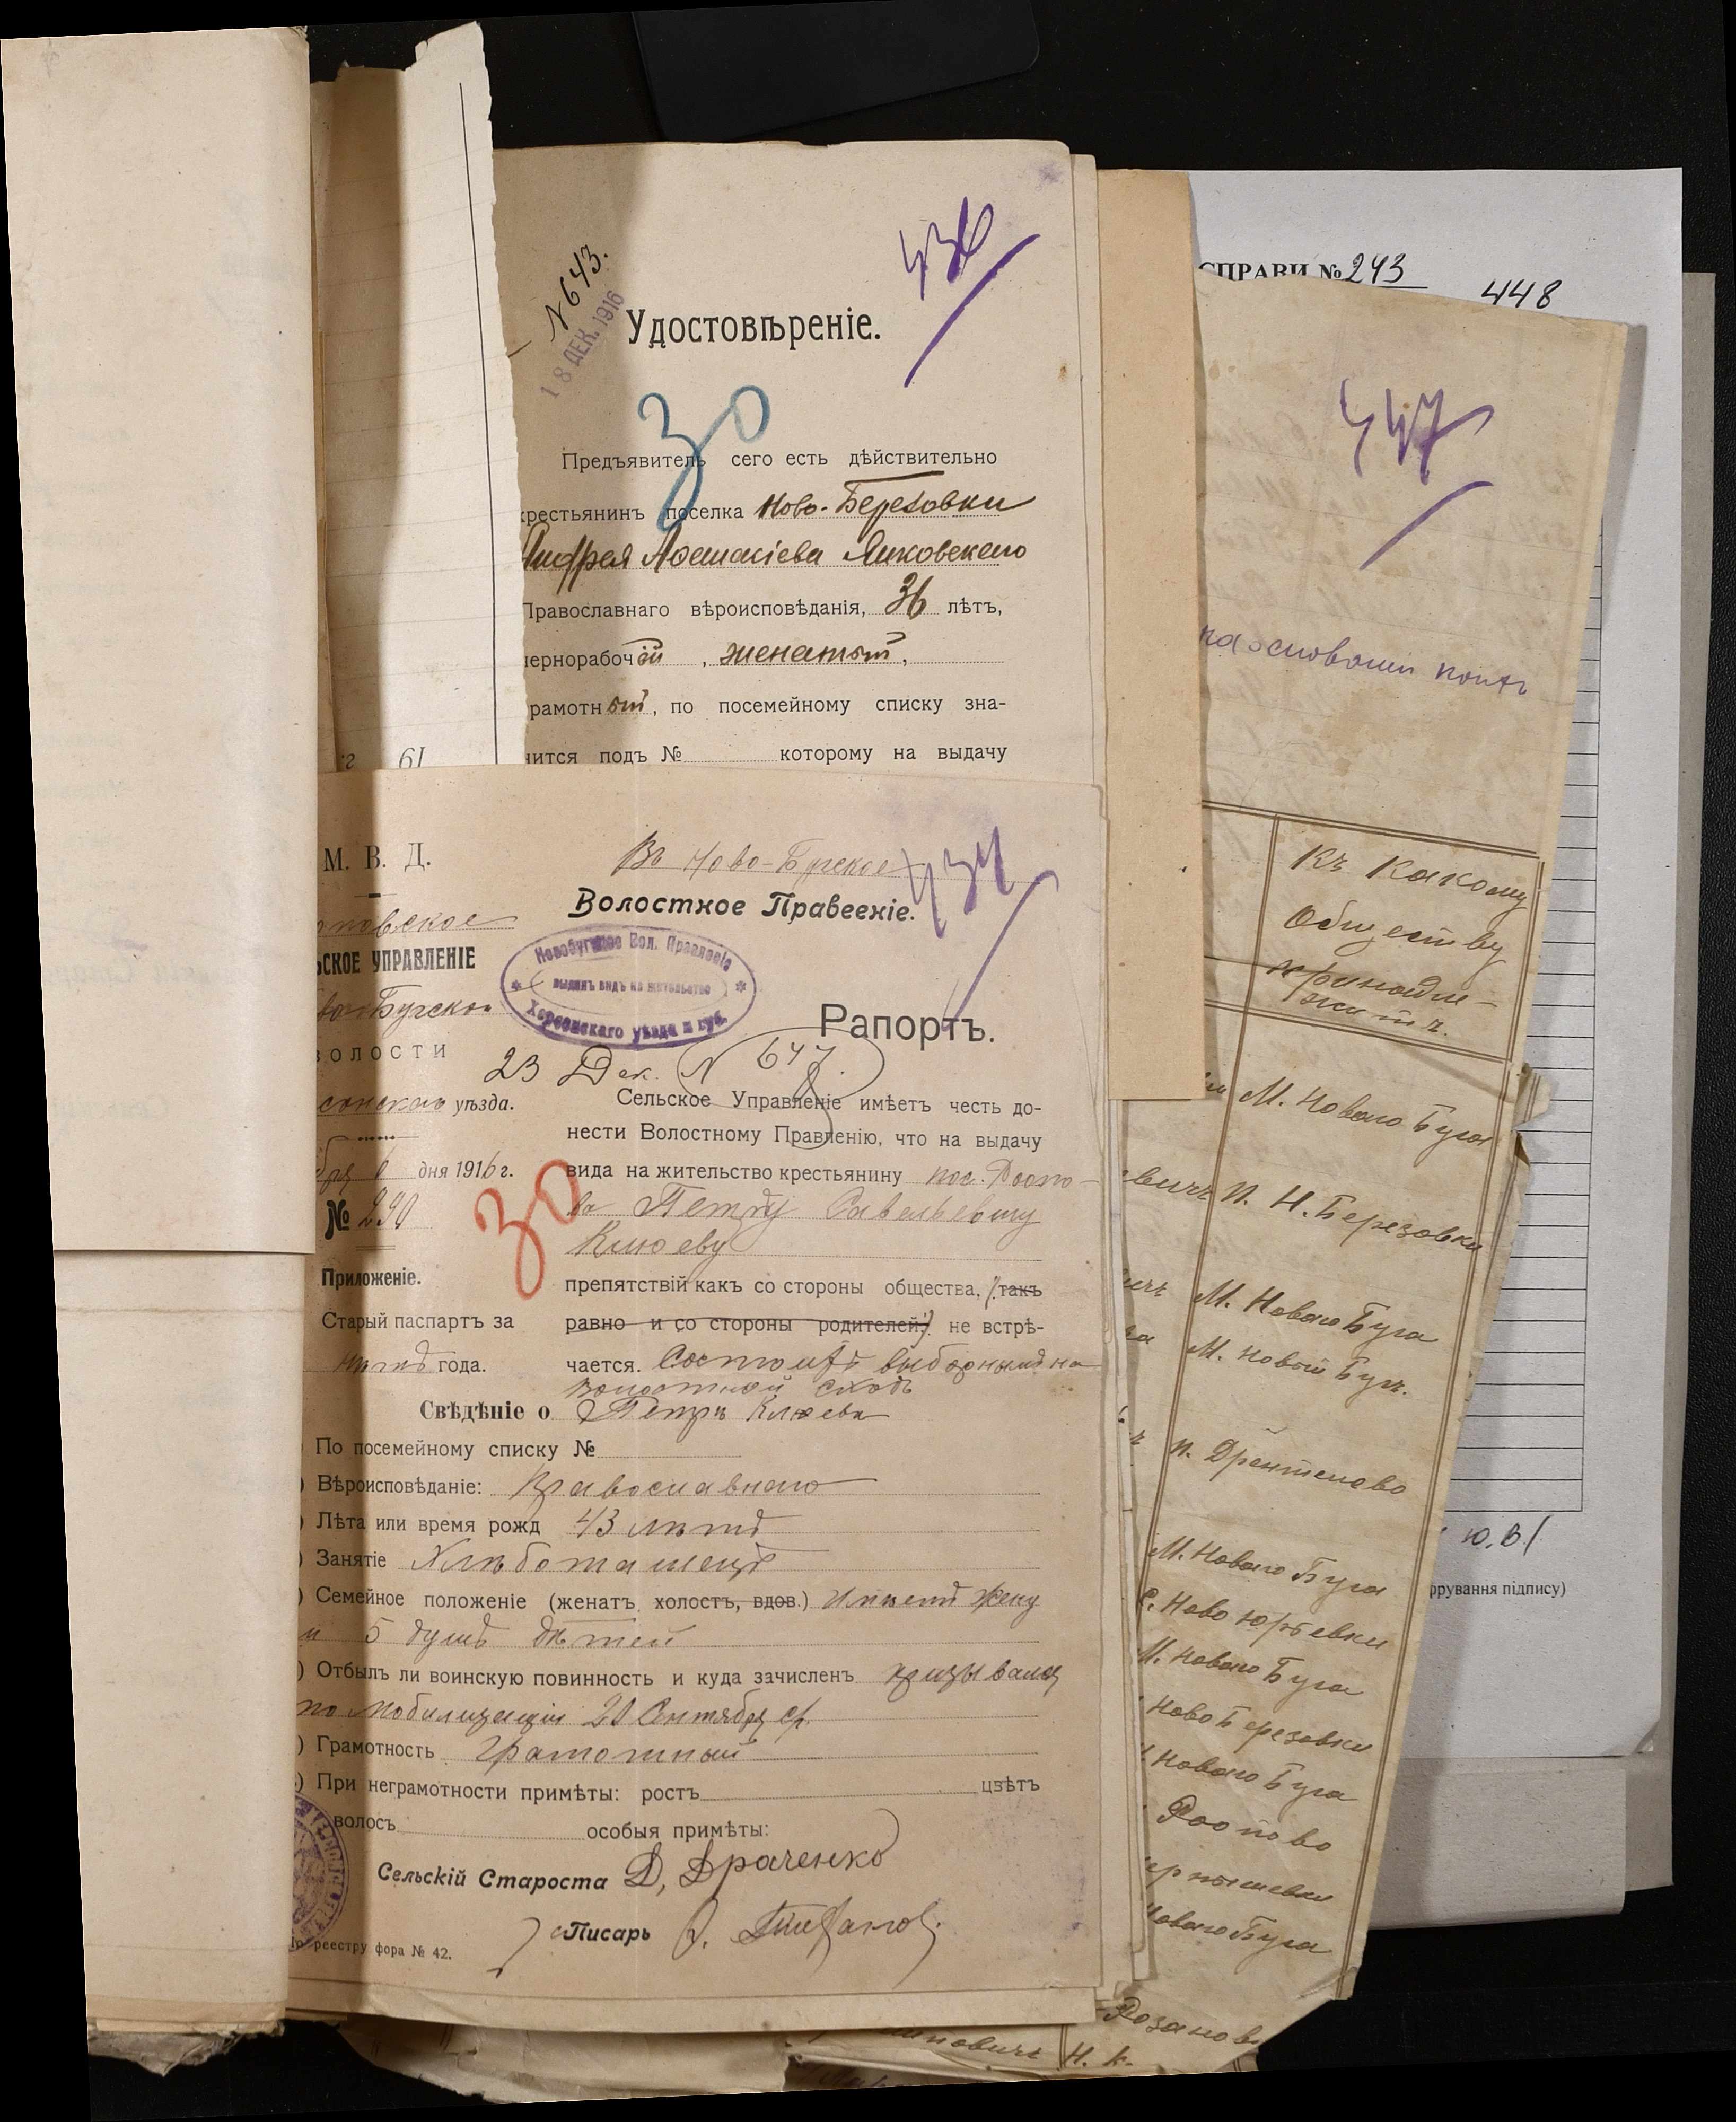 436
№ 643.
18 ДЕК. 1916
Удостовѣреніе.
30
Предъявитель сего есть дѣйствительно
крестьянинъ поселка Ново-Березовки
Андрея Янковскаго
Православнаго вѣроисповѣданія, 36 лѣтъ,
чернорабочій, женатый,
рамотный, по посемейному списку зна-
чится подъ № которому на выдачу
61
М. В. Д.
ЬСКОЕ УПРАВЛЕНІЕ
Бугской
волости
сонскаго уѣзда.
бря 6 дня 1916 г.
№ 290
Приложеніе.
Старый паспартъ за
года.
Въ Ново-Бугское
434
Волостное Правееніе.
Новобугское Вол. Правленіе
выданъ видъ на жительство
Херсонскаго уѣзда и губ.
Рапортъ.
23 Дек. № 647
Сельское Управленіе имѣетъ честь до-
нести Волостному Правленію, что на выдачу
вида на жительство крестьянину пос. Роопо-
ва Петру Савельевичу
Клюеву
30
препятствій какъ со стороны общества, (такъ
равно и со стороны родителей) не встрѣ-
чается. Состоитъ выборнымъ на
волостной сходъ
Свѣдѣніе о Петрѣ Клюевѣ
) По посемейному списку №
) Вѣроисповѣданіе: Православнаго
) Лѣта или время рожд 43 лѣтъ
) Занятіе Хлѣбопашецъ
) Семейное положеніе (женатъ холостъ, вдов.) Имѣетъ жену
и 5 душъ дѣтей
) Отбылъ ли воинскую повинность и куда зачисленъ призывался
по мобилизаціи 20 Сентября с/г.
) Грамотность грамотный
) При неграмотности примѣты: ростъ цвѣтъ
волосъ особыя примѣты:
Сельскій Староста Д. Драченко
Писарь
реестру фора № 42.
СПРАВИ № 243
448
447
на основаніи
Къ какому
Обществу
принадле-
житъ.
М. Новаго Буга
п. Н. Березовки
М. Новаго Буга
М. Новый Бугъ.
п. Дрентелево
М. Новаго Буга
С. Ново Юрьевки
М. Новаго Буга
Ново Березовки
Новаго Буга
Роопово
Новаго Буга
Розанов
Н. К.
Ю.В/
рування підпису)